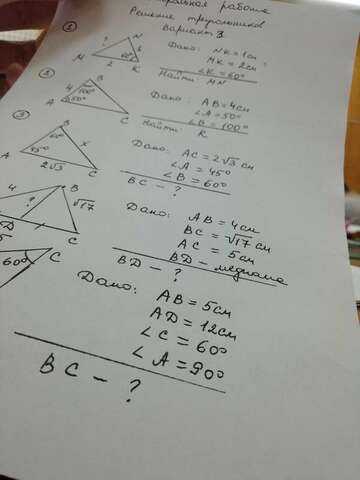 работа
Решение треугольников
Вариант 1
① Дано: NK = 1см
MK = 2см
∠K = 60°
Найти: MN
? N 1 60° M 2 K
② Дано: AB = 4см
∠A = 50°
∠B = 100°
Найти: R
B 4 100° A 50° C
③ Дано: AC = 2√3 см
∠A = 45°
∠B = 60°
BC - ?
B 60° x A 45° 2√3 C
Дано: AB = 4см
BC = √17 см
AC = 5см
BD - медиана
BD - ?
4 B ? √17 D C 5
Дано: AB = 5см
AD = 12см
∠C = 60°
∠A = 90°
BC - ?
60° C